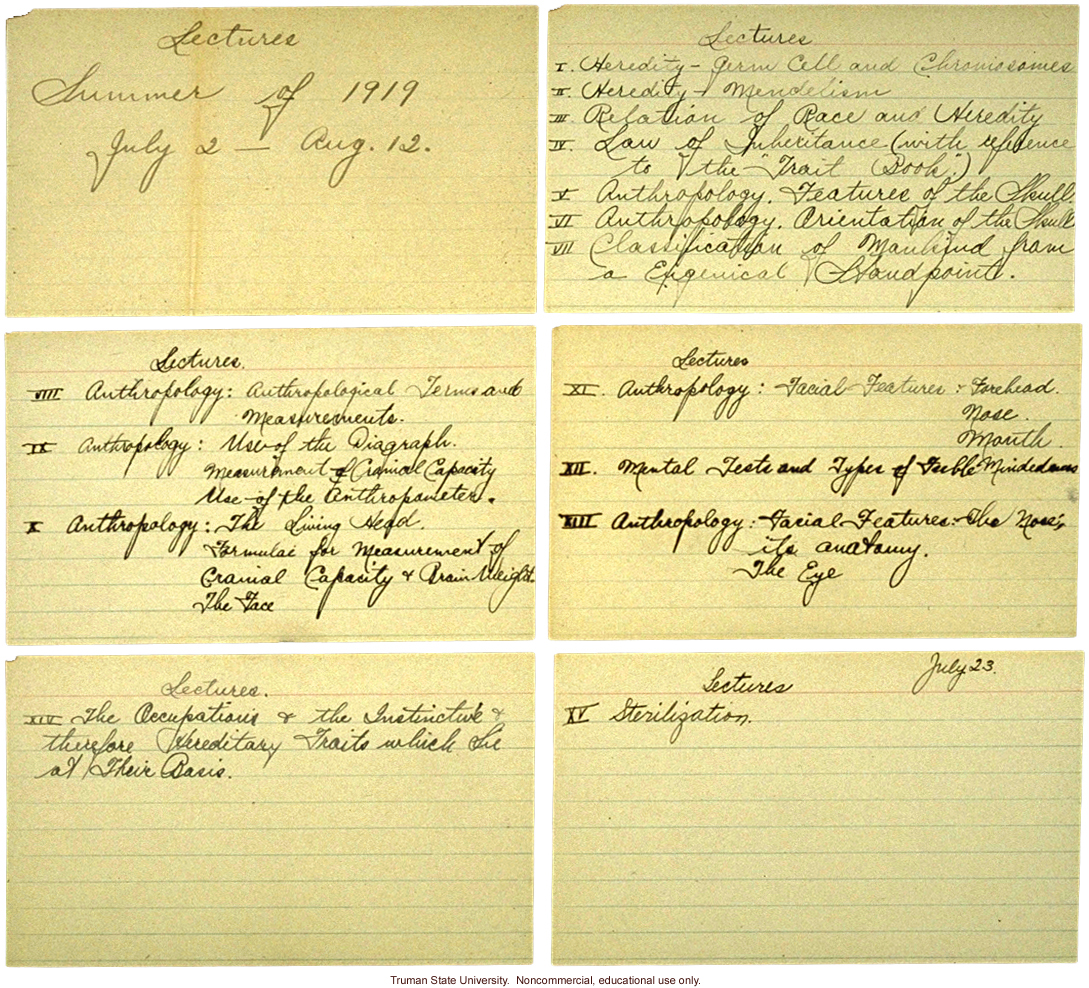 Lectures
Summer of 1919
July 2 — Aug. 12.
Lectures
I. Heredity - Germ Cell and Chromosomes
II. Heredity - Mendelism
III. Relation of Race and Heredity
IV. Law of Inheritance (with reference
to the "Trait Book".)
V Anthropology. Features of the Skull.
VI Anthropology. Orientation of the Skull
VII Classification of Mankind from
a Eugenical Standpoint.
Lectures.
VIII Anthropology: Anthropological Terms and
Measurements.
IX Anthropology: Use of the Diagraph.
Measurement of Cranial Capacity
Use of the Anthropometer.
X Anthropology: The Living Head.
Formulae for Measurement of
Cranial Capacity & Brain Weight
The Face
Lectures
XI. Anthropology: Facial Features: Forehead.
Nose.
Mouth.
XII. Mental Tests and Types of Feeble Mindedness
XIII Anthropology: Facial Features: The Nose;
its anatomy.
The Eye
Lectures.
XIV The Occupations & the Instinctive &
therefore Hereditary Traits which Lie
at Their Basis.
July 23.
Lectures
XV Sterilization.
Truman State University. Noncommercial, educational use only.